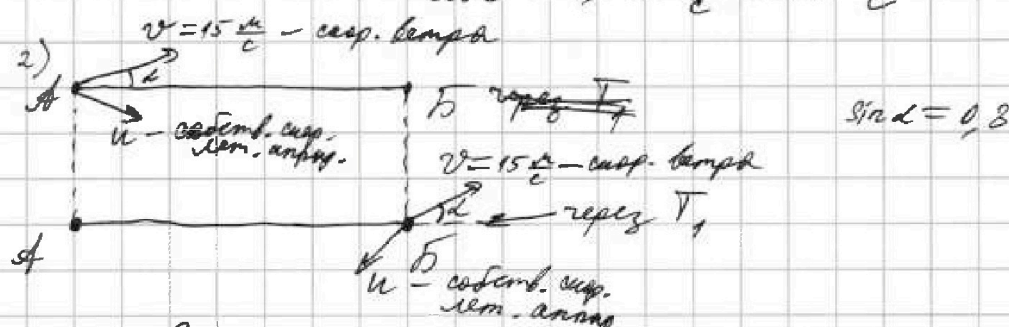 v = 15 м/с – скор. ветра
2)
α
А
Б
u – собств. скор.
лет. аппар.
sin α = 0,8
v = 15 м/с – скор. ветра
α
через T₁
А
Б
u – собств. скор.
лет. аппар